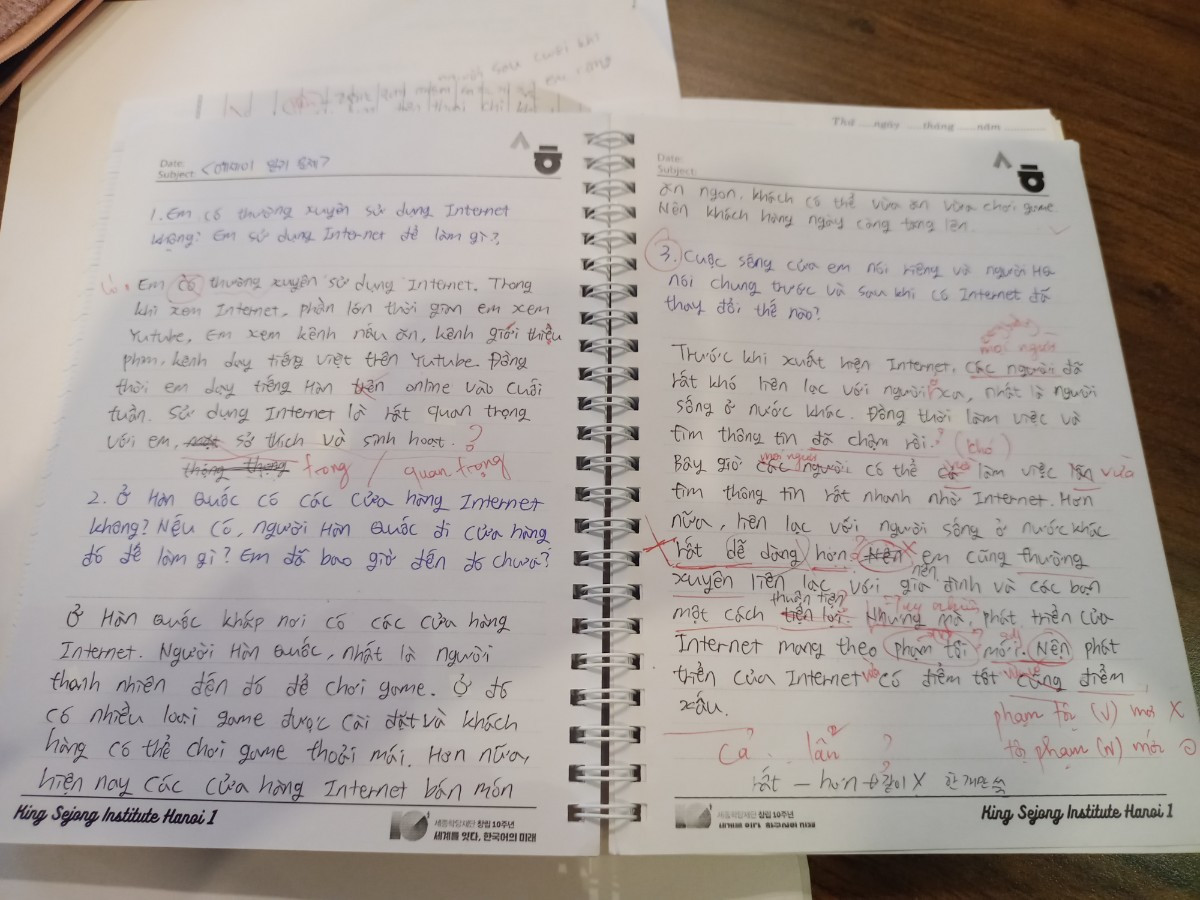 Date:
Subject:
1. Em có thường xuyên sử dụng Internet
không? Em sử dụng Internet để làm gì?
Em có thường xuyên sử dụng Internet. Trong
khi xem Internet, phần lớn thời gian em xem
Yutube, Em xem kênh nấu ăn, kênh giới thiệu
phim, kênh dạy tiếng việt trên Yutube. Đồng
thời em dạy tiếng Hàn trên online vào cuối
tuần. Sử dụng Internet là rất quan trọng
với em, sở thích và sinh hoạt. ?
trong / quan trọng
2. Ở Hàn Quốc có các cửa hàng Internet
không? Nếu có, người Hàn Quốc đi cửa hàng
đó để làm gì? Em đã bao giờ đến đó chưa?
Ở Hàn Quốc khắp nơi có các cửa hàng
Internet. Người Hàn Quốc, nhất là người
thanh nhiên đến đó để chơi game. Ở đó
có nhiều loại game được cài đặt và khách
hàng có thể chơi game thoải mái. Hơn nữa,
hiện nay các cửa hàng Internet bán món
King Sejong Institute Hanoi 1
세종학당재단 창립 10주년
세계를 잇다, 한국어의 미래
Thứ ngày tháng năm
Date:
Subject:
ăn ngon, khách có thể vừa ăn vừa chơi game
Nên khách hàng ngày càng tăng lên.
3. Cuộc sống của em nói riêng và người Hà
nội chung trước và sau khi có Internet đã
thay đổi thế nào?
mọi người
Trước khi xuất hiện Internet, các người đã
rất khó liên lạc với người xa, nhất là người
sống ở nước khác. Đồng thời làm việc và
tìm thông tin đã chậm rồi. ? (khó)
mọi người
Bây giờ các người có thể cả làm việc lẫn vừa
tìm thông tin rất nhanh nhờ Internet. Hơn
nữa, liên lạc với người sống ở nước khác
rất dễ dàng hơn. Nên em cũng thường
nên
xuyên liên lạc với gia đình và các bạn
thuận tiện
một cách tiện lợi. Nhưng mà, phát triển của
Tuy nhiên
Internet mang theo phạm tội mới. Nên phát
triển của Internet có điểm tốt cũng điểm
xấu.
phạm tội (V) mới X
tội phạm (N) mới O
Cả lẫn ?
rất – hơn 같이 X 한개만 씀
세종학당재단 창립 10주년
세계를 잇다, 한국어의 미래
King Sejong Institute Hanoi 1